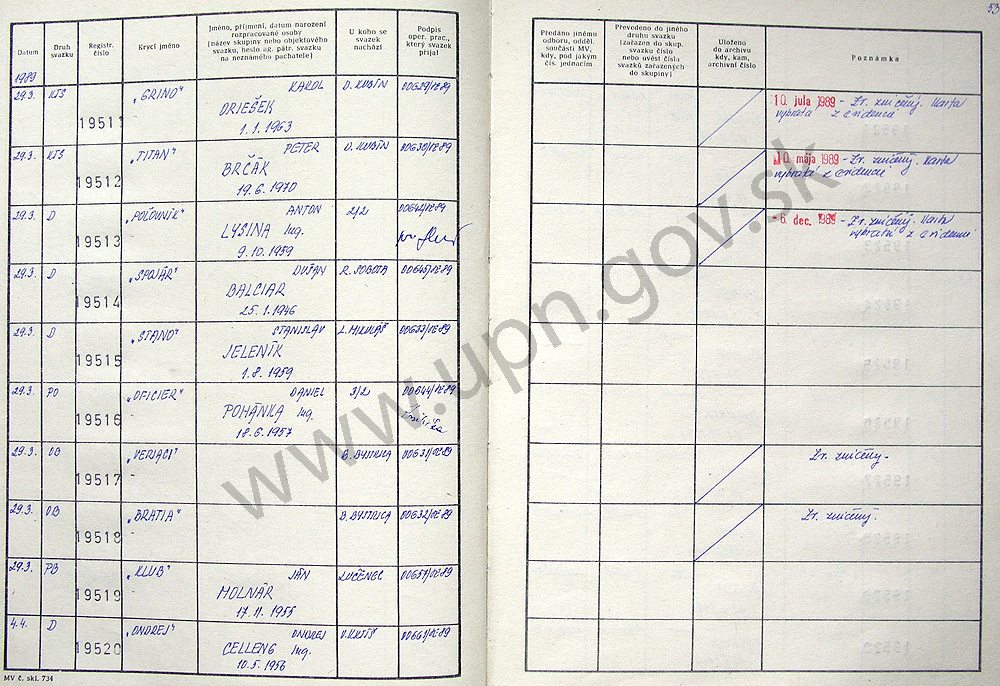 53
Datum
Druh svazku
Registr. číslo
Krycí jméno
Jméno, příjmení, datum narození rozpracované osoby (název skupiny nebo objektového svazku, heslo ag. pátr. svazku na neznámého pachatele)
U koho se svazek nachází
Podpis oper. prac., který svazek přijal
Předáno jinému odboru, odděl. součásti MV, kdy, pod jakým čís. jednacím
Převedeno do jiného druhu svazku (zařazen do skup. svazku číslo nebo uvést čísla svazků zařazených do skupiny)
Uloženo do archivu kdy, kam, archivní číslo
Poznámka
1989
29.3. KTS 19511 „GRINO" KAROL D. KUBÍN
DRIEŠEK
1.1.1963
10. júla 1989 - Zr. zničený. Karta
vybratá z evidence
29.3. KTS 19512 „TITAN" PETER D. KUBÍN 00630/VZ-89
BRČÁK
19.6.1970
10. mája 1989 - Zr. zničený. Karta
vybratá z evidence
29.3. D 19513 „POĽOVNÍK" ANTON 2/2
LYSINA Ing.
9.10.1959
-6. dec. 1989 - Zr. zničený. Karta
vybratá z evidencie
29.3. D 19514 „SPOJÁR" DUŠAN R. SOBOTA 00645/VZ-89
BALCIAR
25.1.1946
29.3. D 19515 „STANO" STANISLAV L. MIKULÁŠ 00653/VZ-89
JELENÍK
1.8.1959
29.3. PO 19516 „OFICIER" DANIEL 3/2 00644/VZ-89
POHÁNKA Ing.
18.6.1957
29.3. OB 19517 „VERIACI" B. BYSTRICA 00631/VZ-89
Zr. zničený.
29.3. OB 19518 „BRATIA" B. BYSTRICA 00632/VZ-89
Zr. zničený.
29.3. PB 19519 „KLUB" JÁN LUČENEC 00657/VZ-89
MOLNÁR
17.11.1955
4.4. D 19520 „ONDREJ" ONDREJ V. KRTÍŠ 00661/VZ-89
CELLENG Ing.
10.5.1956
MV č. skl. 734
www.upn.gov.sk